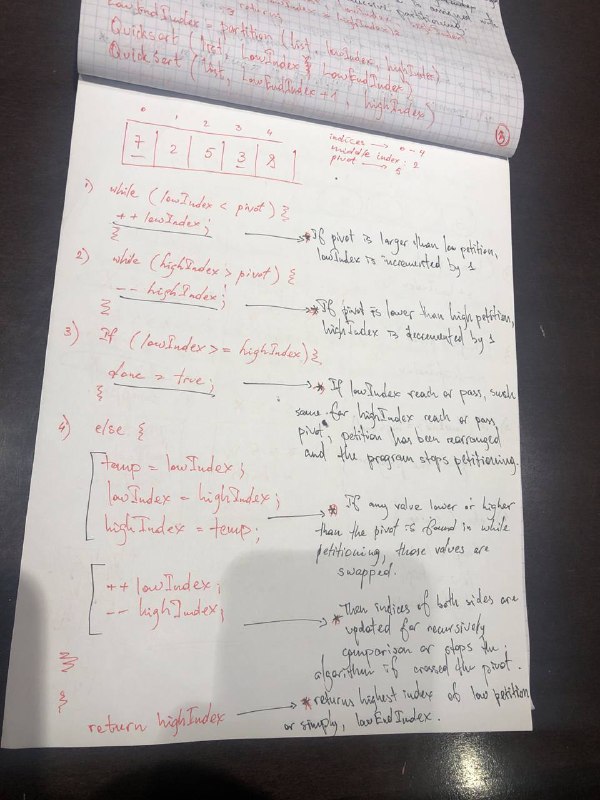 LowEndIndex = partition (list, lowIndex, highIndex)
Quicksort (list, LowIndex, LowEndIndex)
QuickSort (list, LowEndIndex + 1, highIndex)
3
0 1 2 3 4
7 2 5 3 8
indices → 0 - 4
middle index: 2
pivot → 5
1) while (lowIndex < pivot) {
++ lowIndex;
}
* If pivot is larger than low petition,
lowIndex is incremented by 1
2) while (highIndex > pivot) {
-- highIndex;
}
* If pivot is lower than high petition,
highIndex is decremented by 1
3) If (lowIndex >= highIndex) {
done = true;
}
* If lowIndex reach or pass, such
same for highIndex reach or pass
pivot, petition has been rearranged
and the program stops petitioning.
4) else {
temp = lowIndex;
lowIndex = highIndex;
highIndex = temp;
* If any value lower or higher
than the pivot is found in while
petitioning, those values are
swapped.
++ lowIndex;
-- highIndex;
* Then indices of both sides are
updated for recursively
comparison or stops the
algorithm if crossed the pivot.
}
}
return highIndex
* returns highest index of low petition
or simply, lowEndIndex.